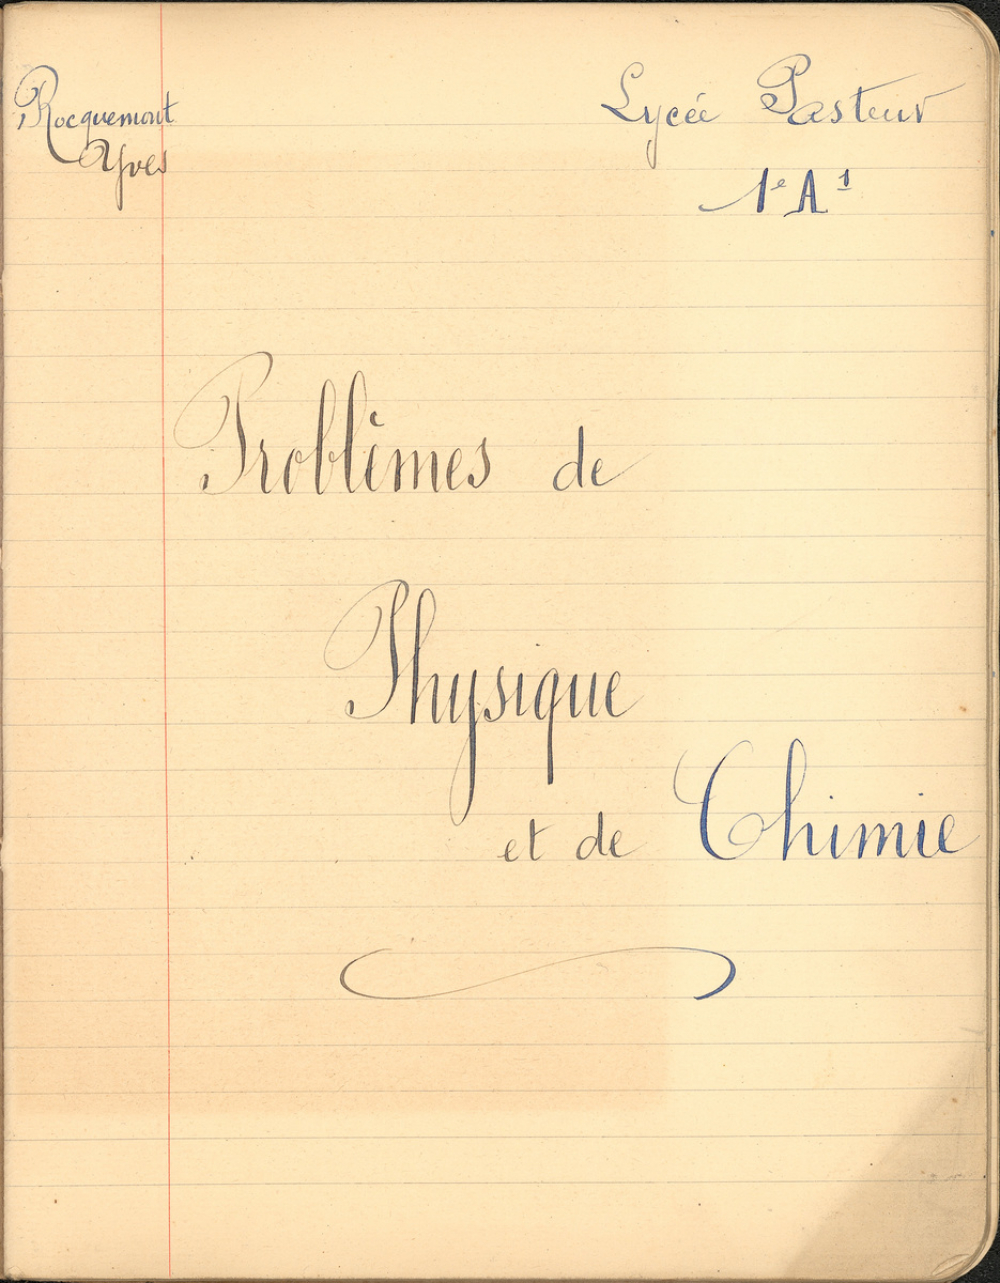 Rocquemont
Yves
Lycée Pasteur
1e A1
Problèmes de
Physique
et de Chimie